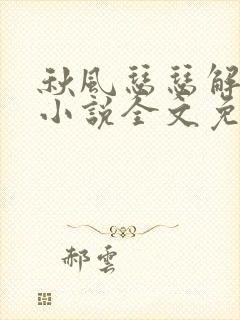 秋風瑟瑟解
小說全文免
郝雲